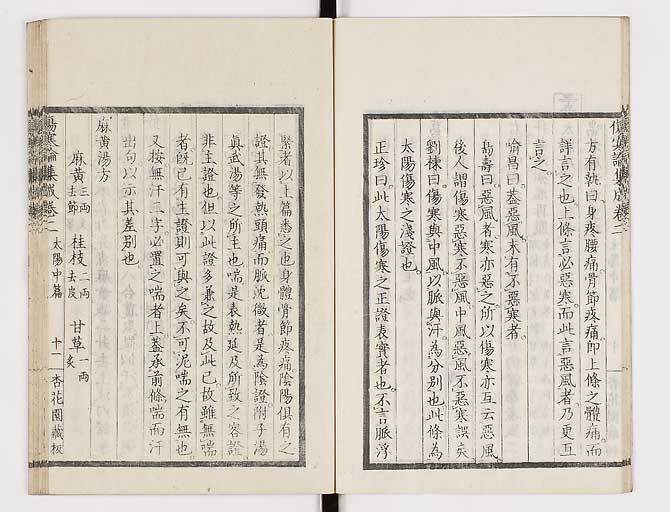 方有執曰身疼腰痛骨節疼痛即上條之體痛而
詳言之也上條言必惡寒而此言惡風者乃更互
言之
喻昌曰蓋惡風未有不惡寒者
壽曰惡風者寒亦惡之所以傷寒亦互云惡風
後人謂傷寒惡寒不惡風中風惡風不惡寒誤矣
劉棟曰傷寒與中風以脈與汗為分別也此條為
太陽傷寒之淺證也
正珍曰此太陽傷寒之正證表實者也不言脈浮
緊者以上篇悉之也身體骨節疼痛陰陽俱有之
證其無發熱頭痛而脈沈微者是為陰證附子湯
真武湯等之所主也喘是表熱延及所致之客證
非主證也但以此證多兼之故及此已故雖無喘
者既已有主證則可與之矣不可泥喘之有無也
又按無汗二字必置之喘者上蓋承前條喘而汗
出句以示其差別也
麻黃湯方
麻黃三兩去節 桂枝二兩去皮 甘草一兩炙
傷寒論集成卷二 太陽中篇 十一 杏花園藏板